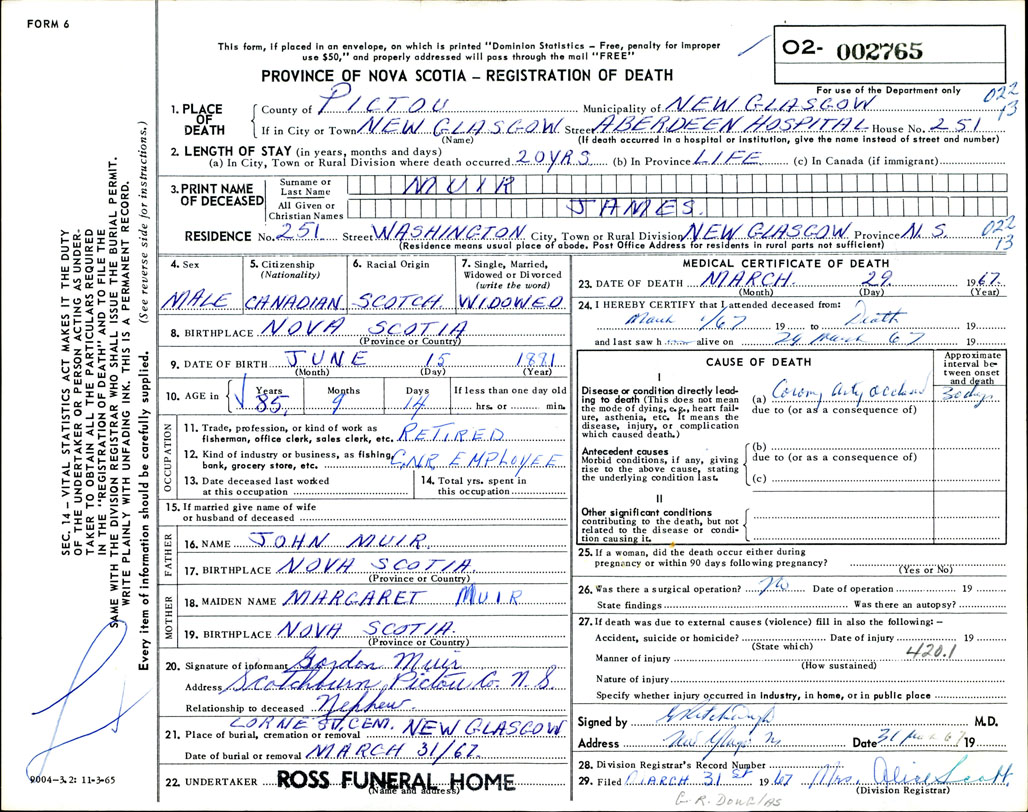 FORM 6
This form, if placed in an envelope, on which is printed "Dominion Statistics – Free, penalty for improper
use $50," and properly addressed will pass through the mail "FREE"
PROVINCE OF NOVA SCOTIA – REGISTRATION OF DEATH
O2- 002765
For use of the Department only
022
13
1. PLACE OF DEATH
County of PICTOU Municipality of NEW GLASGOW
If in City or Town NEW GLASGOW Street ABERDEEN HOSPITAL House No. 251
(Name) (If death occurred in a hospital or institution, give the name instead of street and number)
2. LENGTH OF STAY (in years, months and days)
(a) In City, Town or Rural Division where death occurred. 20 YRS. (b) In Province LIFE (c) In Canada (if immigrant)
3. PRINT NAME OF DECEASED
Surname or Last Name MUIR
All Given or Christian Names JAMES.
RESIDENCE No. 251 Street WASHINGTON City, Town or Rural Division NEW GLASGOW Province N. S.
(Residence means usual place of abode. Post Office Address for residents in rural parts not sufficient)
022
13
4. Sex
MALE
5. Citizenship
(Nationality)
CANADIAN
6. Racial Origin
SCOTCH
7. Single, Married,
Widowed or Divorced
(write the word)
WIDOWED
8. BIRTHPLACE NOVA SCOTIA
(Province or Country)
9. DATE OF BIRTH JUNE 15 1881
(Month) (Day) (Year)
10. AGE in Years Months Days If less than one day old
85 9 14 hrs. or min.
OCCUPATION
11. Trade, profession, or kind of work as
fisherman, office clerk, sales clerk, etc. RETIRED
12. Kind of industry or business, as fishing,
bank, grocery store, etc. C.N.R EMPLOYEE
13. Date deceased last worked
at this occupation
14. Total yrs. spent in
this occupation
15. If married give name of wife
or husband of deceased
FATHER
16. NAME JOHN MUIR
17. BIRTHPLACE NOVA SCOTIA
(Province or Country)
MOTHER
18. MAIDEN NAME MARGARET MUIR
19. BIRTHPLACE NOVA SCOTIA.
(Province or Country)
20. Signature of informant Gordon Muir
Address Scotchburn Pictou Co. N. S.
Relationship to deceased Nephew.
LORNE ST. CEM.
21. Place of burial, cremation or removal NEW GLASGOW
Date of burial or removal MARCH 31/67.
22. UNDERTAKER ROSS FUNERAL HOME
(Name and address)
MEDICAL CERTIFICATE OF DEATH
23. DATE OF DEATH MARCH 29. 1967.
(Month) (Day) (Year)
24. I HEREBY CERTIFY that I attended deceased from:
March 1/67 19 to Death 19
and last saw h alive on 29 March 67 19
CAUSE OF DEATH
Approximate
interval be-
tween onset
and death
I
Disease or condition directly lead-
ing to death (This does not mean
the mode of dying, e.g., heart fail-
ure, asthenia, etc. It means the
disease, injury, or complication
which caused death.)
(a) 30 days
due to (or as a consequence of)
Antecedent causes
Morbid conditions, if any, giving
rise to the above cause, stating
the underlying condition last.
(b)
due to (or as a consequence of)
(c)
II
Other significant conditions
contributing to the death, but not
related to the disease or condi-
tion causing it.
25. If a woman, did the death occur either during
pregnancy or within 90 days following pregnancy?
(Yes or No)
26. Was there a surgical operation? No Date of operation 19
State findings Was there an autopsy?
27. If death was due to external causes (violence) fill in also the following: –
Accident, suicide or homicide? Date of injury 19
(State which)
420.1
Manner of injury
(How sustained)
Nature of injury
Specify whether injury occurred in Industry, in home, or in public place
Signed by M.D.
Address Date 31 67 19
28. Division Registrar's Record Number
29. Filed MARCH 31st 1967 Mrs. Alice Scott
(Division Registrar)
G. R. DOUGLAS
SEC. 14 – VITAL STATISTICS ACT MAKES IT THE DUTY
OF THE UNDERTAKER OR PERSON ACTING AS UNDER-
TAKER TO OBTAIN ALL THE PARTICULARS REQUIRED
IN THE "REGISTRATION OF DEATH" AND TO FILE THE
SAME WITH THE DIVISION REGISTRAR WHO SHALL ISSUE THE BURIAL PERMIT.
WRITE PLAINLY WITH UNFADING INK. THIS IS A PERMANENT RECORD.
Every item of information should be carefully supplied. (See reverse side for instructions.)
9004-3.2: 11-3-65